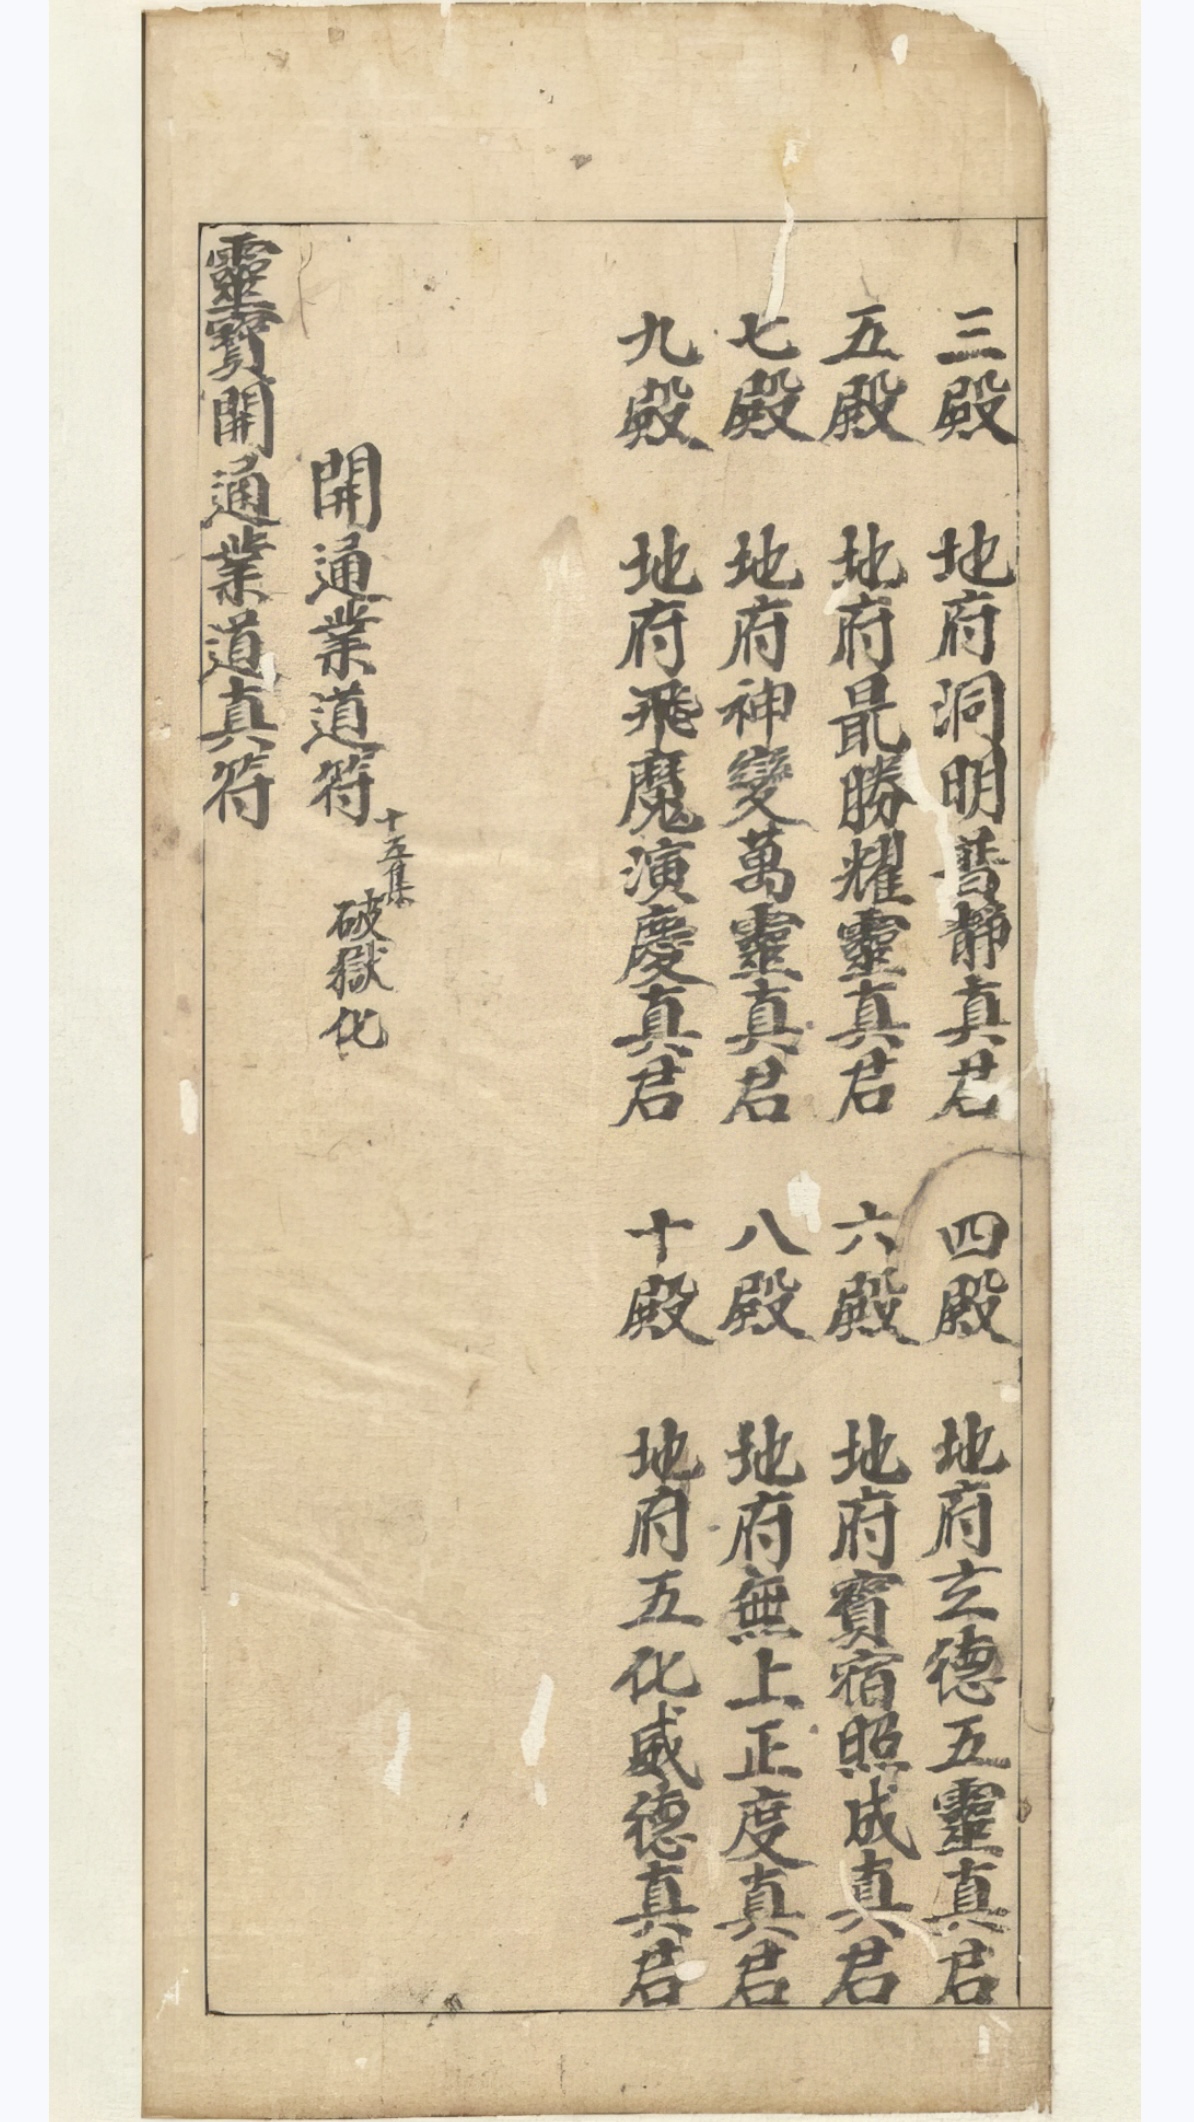 三殿　地府洞明普静真君　四殿　地府玄德五靈真君
五殿　地府最勝耀靈真君　六殿　地府寳宿照成真君
七殿　地府神變萬靈真君　八殿　地府無上正度真君
九殿　地府飛魔演慶真君　十殿　地府五化威德真君
開通業道符　十五集　破獄化
靈寳開通業道真符